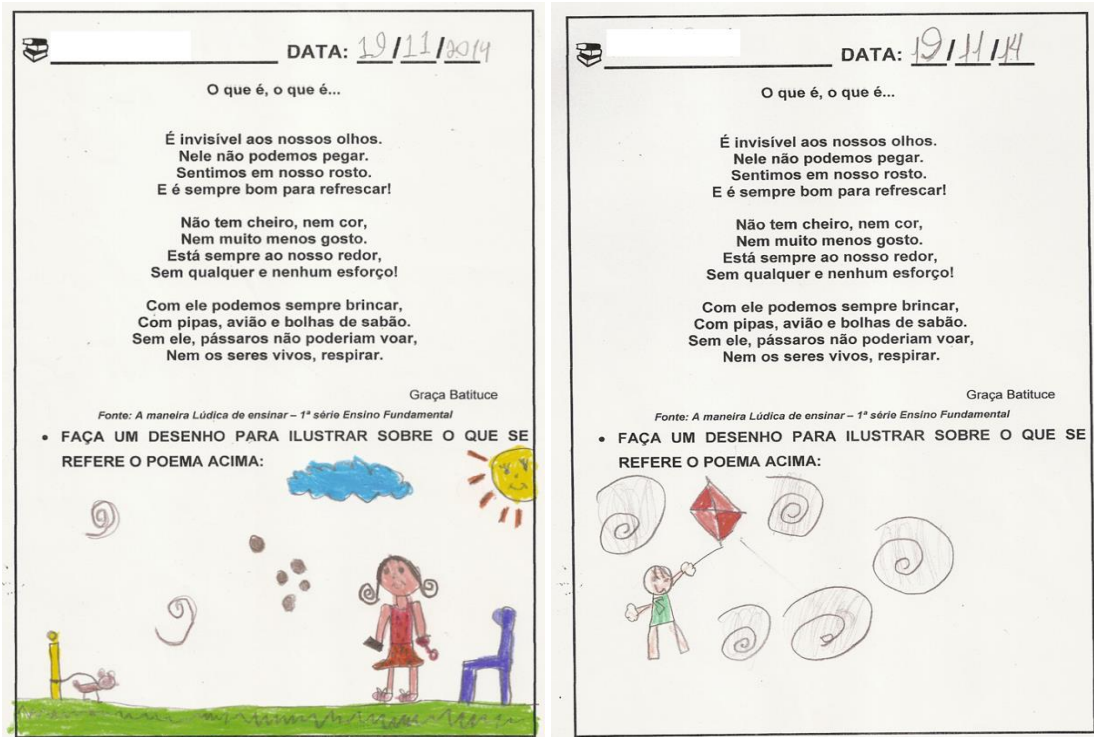 DATA: 19/11/2014
O que é, o que é...
É invisível aos nossos olhos.
Nele não podemos pegar.
Sentimos em nosso rosto.
E é sempre bom para refrescar!
Não tem cheiro, nem cor,
Nem muito menos gosto.
Está sempre ao nosso redor,
Sem qualquer e nenhum esforço!
Com ele podemos sempre brincar,
Com pipas, avião e bolhas de sabão.
Sem ele, pássaros não poderiam voar,
Nem os seres vivos, respirar.
Graça Batituce
Fonte: A maneira Lúdica de ensinar – 1ª série Ensino Fundamental
• FAÇA UM DESENHO PARA ILUSTRAR SOBRE O QUE SE
REFERE O POEMA ACIMA:
DATA: 19/11/14
O que é, o que é...
É invisível aos nossos olhos.
Nele não podemos pegar.
Sentimos em nosso rosto.
E é sempre bom para refrescar!
Não tem cheiro, nem cor,
Nem muito menos gosto.
Está sempre ao nosso redor,
Sem qualquer e nenhum esforço!
Com ele podemos sempre brincar,
Com pipas, avião e bolhas de sabão.
Sem ele, pássaros não poderiam voar,
Nem os seres vivos, respirar.
Graça Batituce
Fonte: A maneira Lúdica de ensinar – 1ª série Ensino Fundamental
• FAÇA UM DESENHO PARA ILUSTRAR SOBRE O QUE SE
REFERE O POEMA ACIMA: